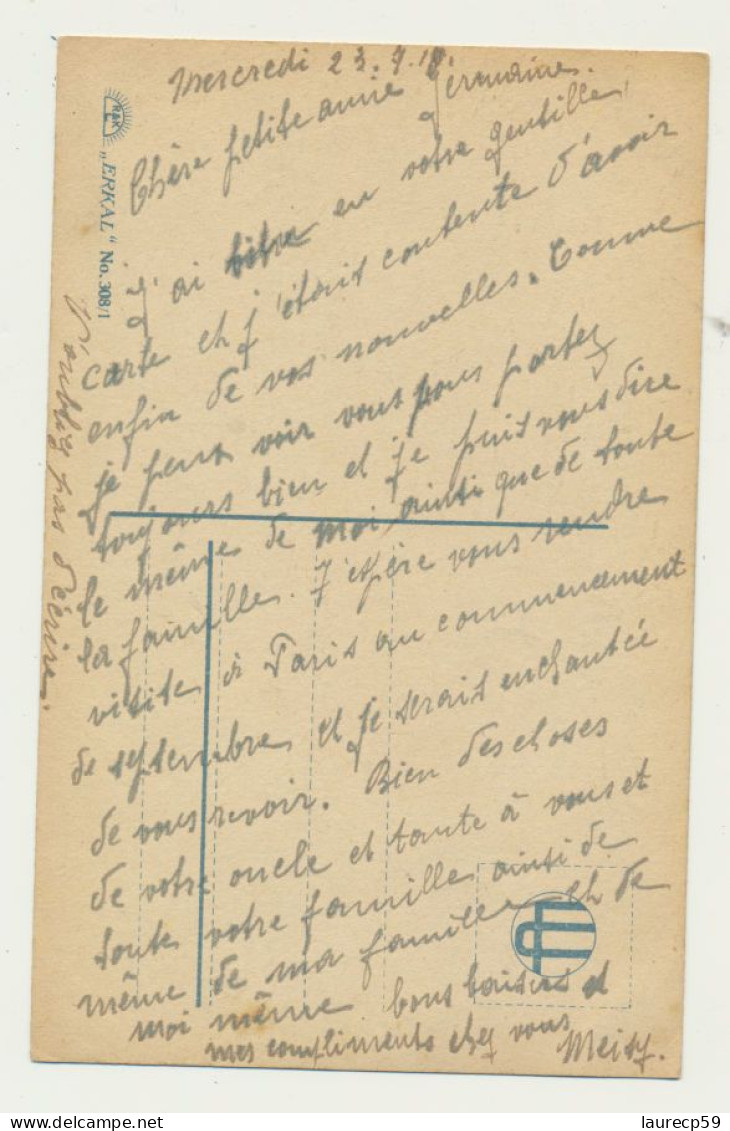 Mercredi 23.7.19.
Chère petite amie Germaine.
J'ai en votre gentille
carte et j'étais contente d'avoir
enfin de vos nouvelles. Comme
je peux voir vous vous portez
toujours bien et je puis vous dire
le même de moi ainsi que de toute
la famille. J'espère vous rendre
visite à Paris au commencement
de septembre et je serais enchantée
de vous revoir. Bien des choses
de votre oncle et tante à vous et
toute votre famille ainsi de
même de ma famille et de
moi même bons baisers et
mes compliments chez vous
N'oubliez pas d'écrire.
R&K
L
„ERKAL“ No. 308/1
laurecp59